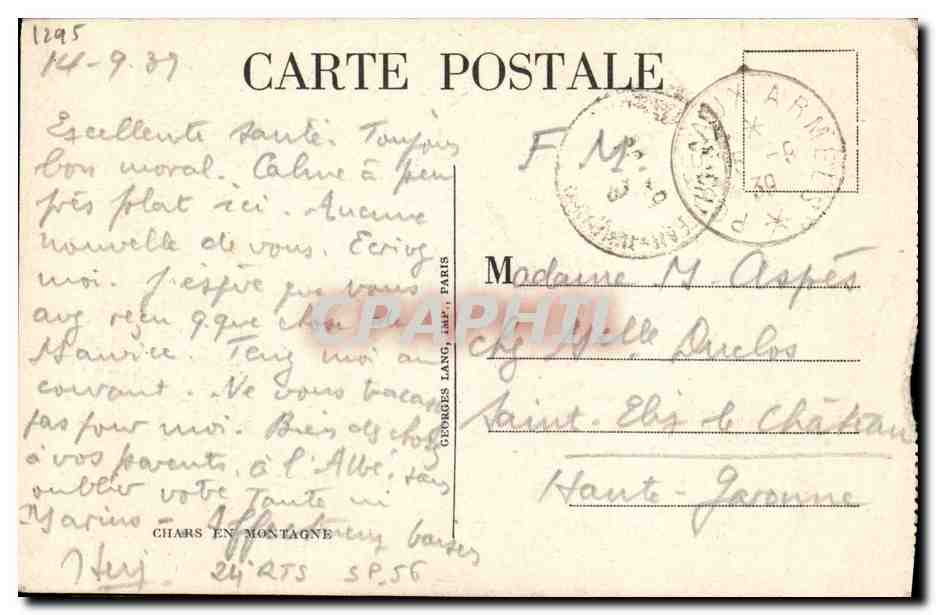 1295
14-9.39
CARTE POSTALE
Excellente santé. Toujours
bon moral. Calme à peu
près plat ici. Aucune
nouvelle de vous. Ecrivez
moi. J'espère que vous
avez reçu q.que chose de
Maurice. Tenez moi au
courant. Ne vous tracassez
pas pour moi. Bien des choses
à vos parents, à l'Abbé, sans
oublier votre Tante ni
Marius - Affectueux baisers
24 RTS SP.56
CHARS EN MONTAGNE
GEORGES LANG, IMP., PARIS
F M
AUX ARMEES
Madame M. Aspés
chez Melle Duclos
Saint. Elix le Château
Haute-Garonne
CPAPHTI